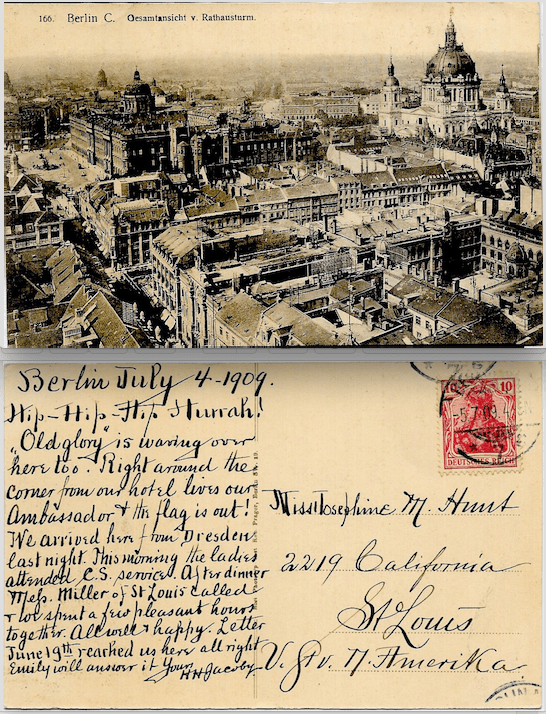 166. Berlin C. Gesamtansicht v. Rathausturm.
Berlin July 4-1909.
Hip-Hip-Hip Hurrah!
"Old glory" is waving over
here too. Right around the
corner from our hotel lives our
Ambassador & the flag is out!
We arrived here from Dresden
last night. This morning the ladies
attended C.S. services. After dinner
Miller of St Louis called
& we spent a few pleasant hours
together. All well & happy. Letter
June 19th reached us here all right
Emily will answer it Your
HH Jacoby
10 10
-5.7.09.4
DEUTSCHES REICH
Miss Josephine M. Hunt
2219 California
St Louis
V. St v. N. Amerika